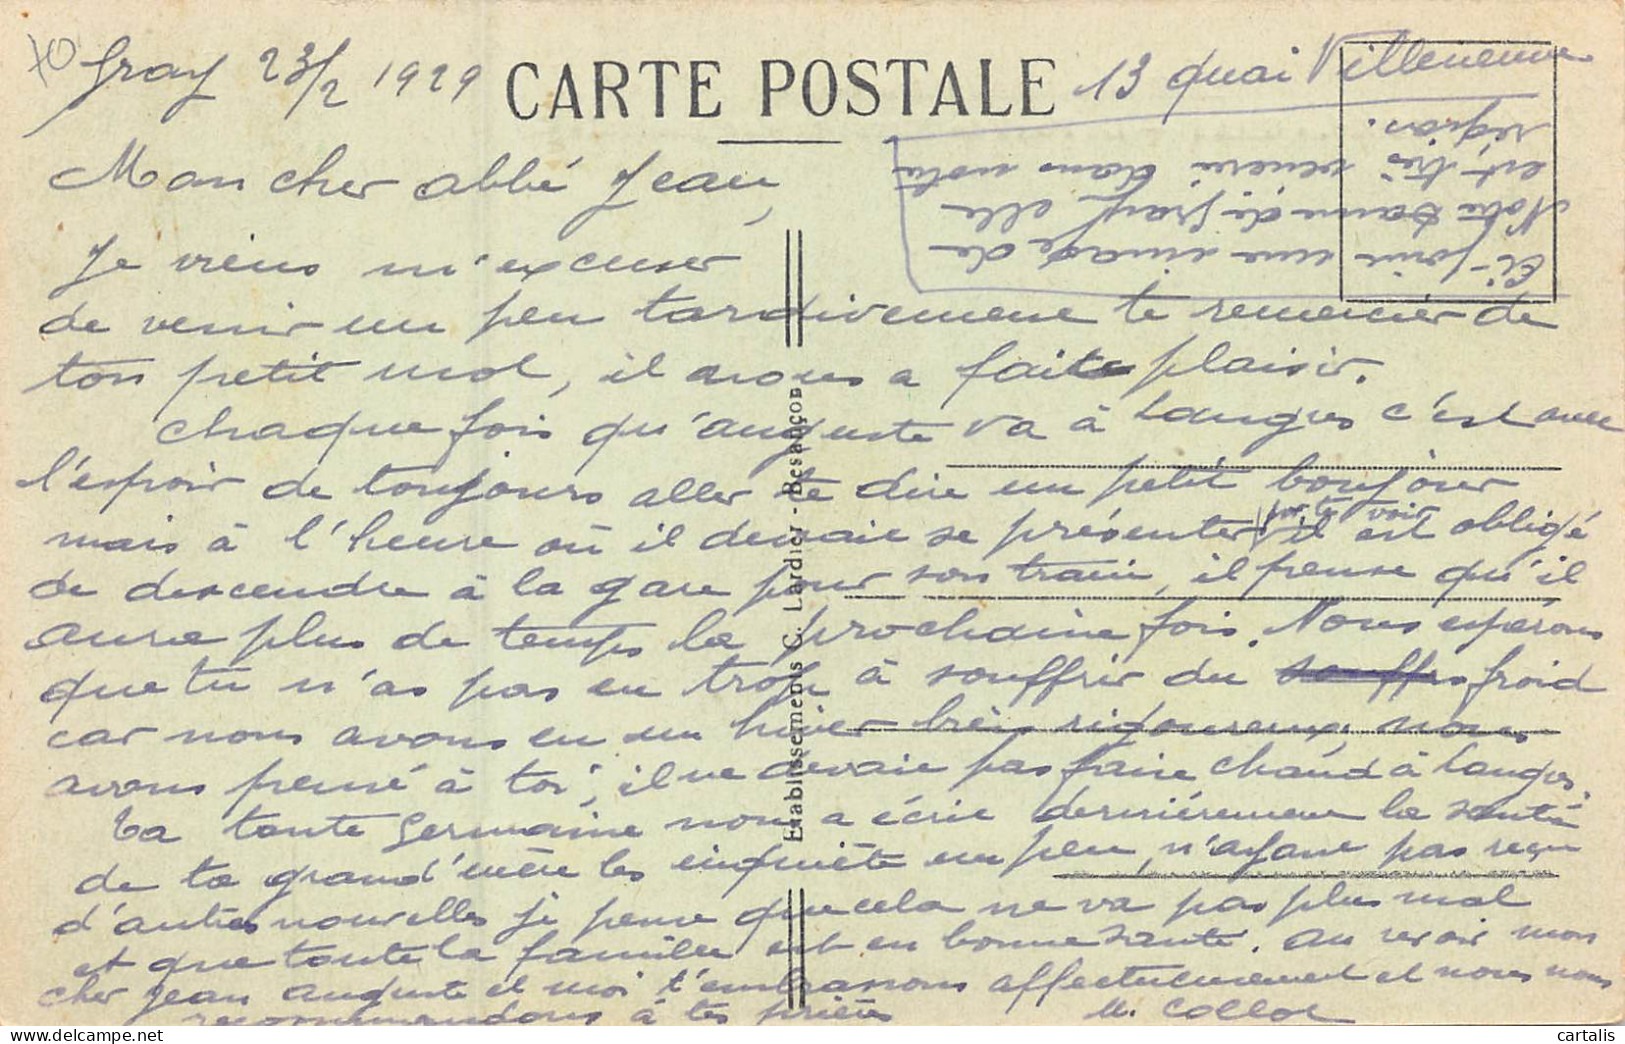 Gray 23/2 1929
CARTE POSTALE
13 quai Villeneuve
Ci-joint une image de
Notre Dame de Gray, elle
est très vénéré dans notre
région.
Mon cher abbé Jean,
Je viens m'excuser
de venir un peu tardivement te remercier de
ton petit mot, il nous a fait plaisir.
Chaque fois qu'auguste va à Langres c'est avec
l'espoir de toujours aller te dire un petit bonjour
mais à l'heure où il devait se présenter pour te voir il est obligé
de descendre à la gare pour son train, il pense qu'il
aura plus de temps la prochaine fois. Nous espérons
que tu n'as pas eu trop à souffrir du froid
car nous avons eu un hiver très rigoureux, nous
avons pensé à toi, il ne devait pas faire chaud à Langres.
Ta tante Germaine nous a écrit dernièrement la santé
de ta grand'mère les inquiète un peu, n'ayant pas reçu
d'autres nouvelles je pense que cela ne va pas plus mal
et que toute la famille est en bonne santé. Au revoir mon
cher Jean auguste et moi t'embrassons affectueusement et nous nous
recommandons à tes prières M. Collot
Etablissements C. Lardier - Besançon
cartalis